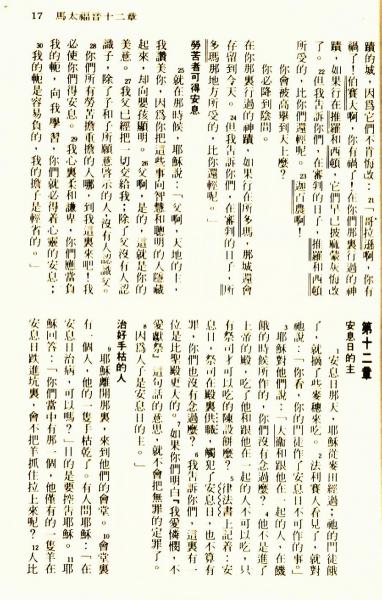 17 馬太福音十二章
蹟的城，因為它們不肯悔改： 21「哥拉遜啊，你有
禍了！伯賽大啊，你有禍了！在你們那裏行過的神
蹟，如果行在推羅和西頓，它們早已披麻蒙灰悔改
了。 22但我告訴你們，在審判的日子，推羅和西頓
所受的，比你們還輕呢。 23迦百農啊，
你會被高舉到天上麼？
你必降到陰間。
在你那裏行過的神蹟，如果行在所多瑪，那城還會
存留到今天。 24但我告訴你們，在審判的日子，所
多瑪那地方所受的，比你還輕呢。」
勞苦者可得安息
25就在那時候，耶穌說：「父啊，天地的主，
我讚美你，因為你把這些事向智慧和聰明的人隱藏
起來，却向嬰孩顯明。 26父啊，是的，這就是你的
美意。 27我父已經把一切交給我；除了父沒有人認
識子，除了子和子所願意啓示的人沒有人認識父。
28你們所有勞苦擔重擔的人哪，到我這裏來吧！我
必使你們得安息。 29我心裏柔和謙卑，你們應當負
我的軛，向我學習，你們就必得着心靈的安息；
30我的軛是容易負的，我的擔子是輕省的。」
第十二章
安息日的主
安息日那天，耶穌從麥田經過；祂的門徒餓
了，就摘了些麥穗來吃。 2法利賽人看見了，就對
祂說：「你看，你的門徒作了安息日不可作的事。」
3耶穌對他們說：「大衞和跟他在一起的人，在飢
餓的時候所作的，你們沒有念過麼？ 4他不是進了
上帝的殿，吃了他和跟他在一起的人不可以吃，只
有祭司才可以吃的陳設餅麼？ 5律法書上記着：安
息日，祭司在殿裏供職，觸犯了安息日，也不算有
罪，你們也沒有念過麼？ 6我告訴你們，這裏有一
位是比聖殿更大的。 7如果你們明白『我愛憐憫，不
愛獻祭』這句話的意思，就不會把無罪的定罪了。
8因為人子是安息日的主。」
治好手枯的人
9耶穌離開那裏，來到他們的會堂。 10會堂裏
有一個人，他的一隻手枯乾了。有人問耶穌：「在
安息日治病，可以嗎？」目的是要控告耶穌。 11耶
穌回答：「你們當中有那一個，他僅有的一隻羊在
安息日跌進坑裏，會不把羊抓住拉上來呢？ 12人比